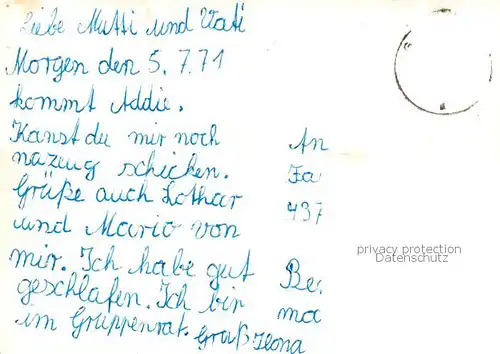 Liebe Mutti und Vati
Morgen den 5.7.71
kommt Addie.
Kanst du mir noch
nazeug schicken.
Grüße auch Lothar
und Mario von
mir. Ich habe gut
geschlafen. Ich bin
im Gruppenrat. Gruß Ilona
An
Fa
437
Be
ma
privacy protection
Datenschutz